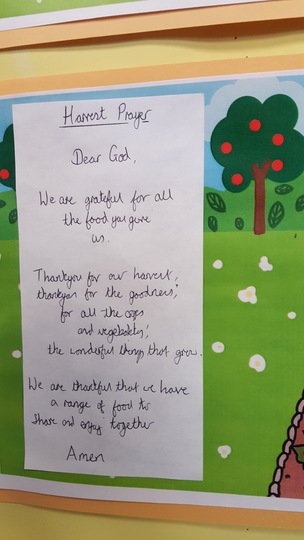 Harvest Prayer
Dear God,
We are grateful for all
the food you give
us.
Thankyou for our harvest,
thankyou for the goodness,
for all the crops
and vegetables,
the wonderful things that grow.
We are thankful that we have
a range of food to
share and enjoy together
Amen